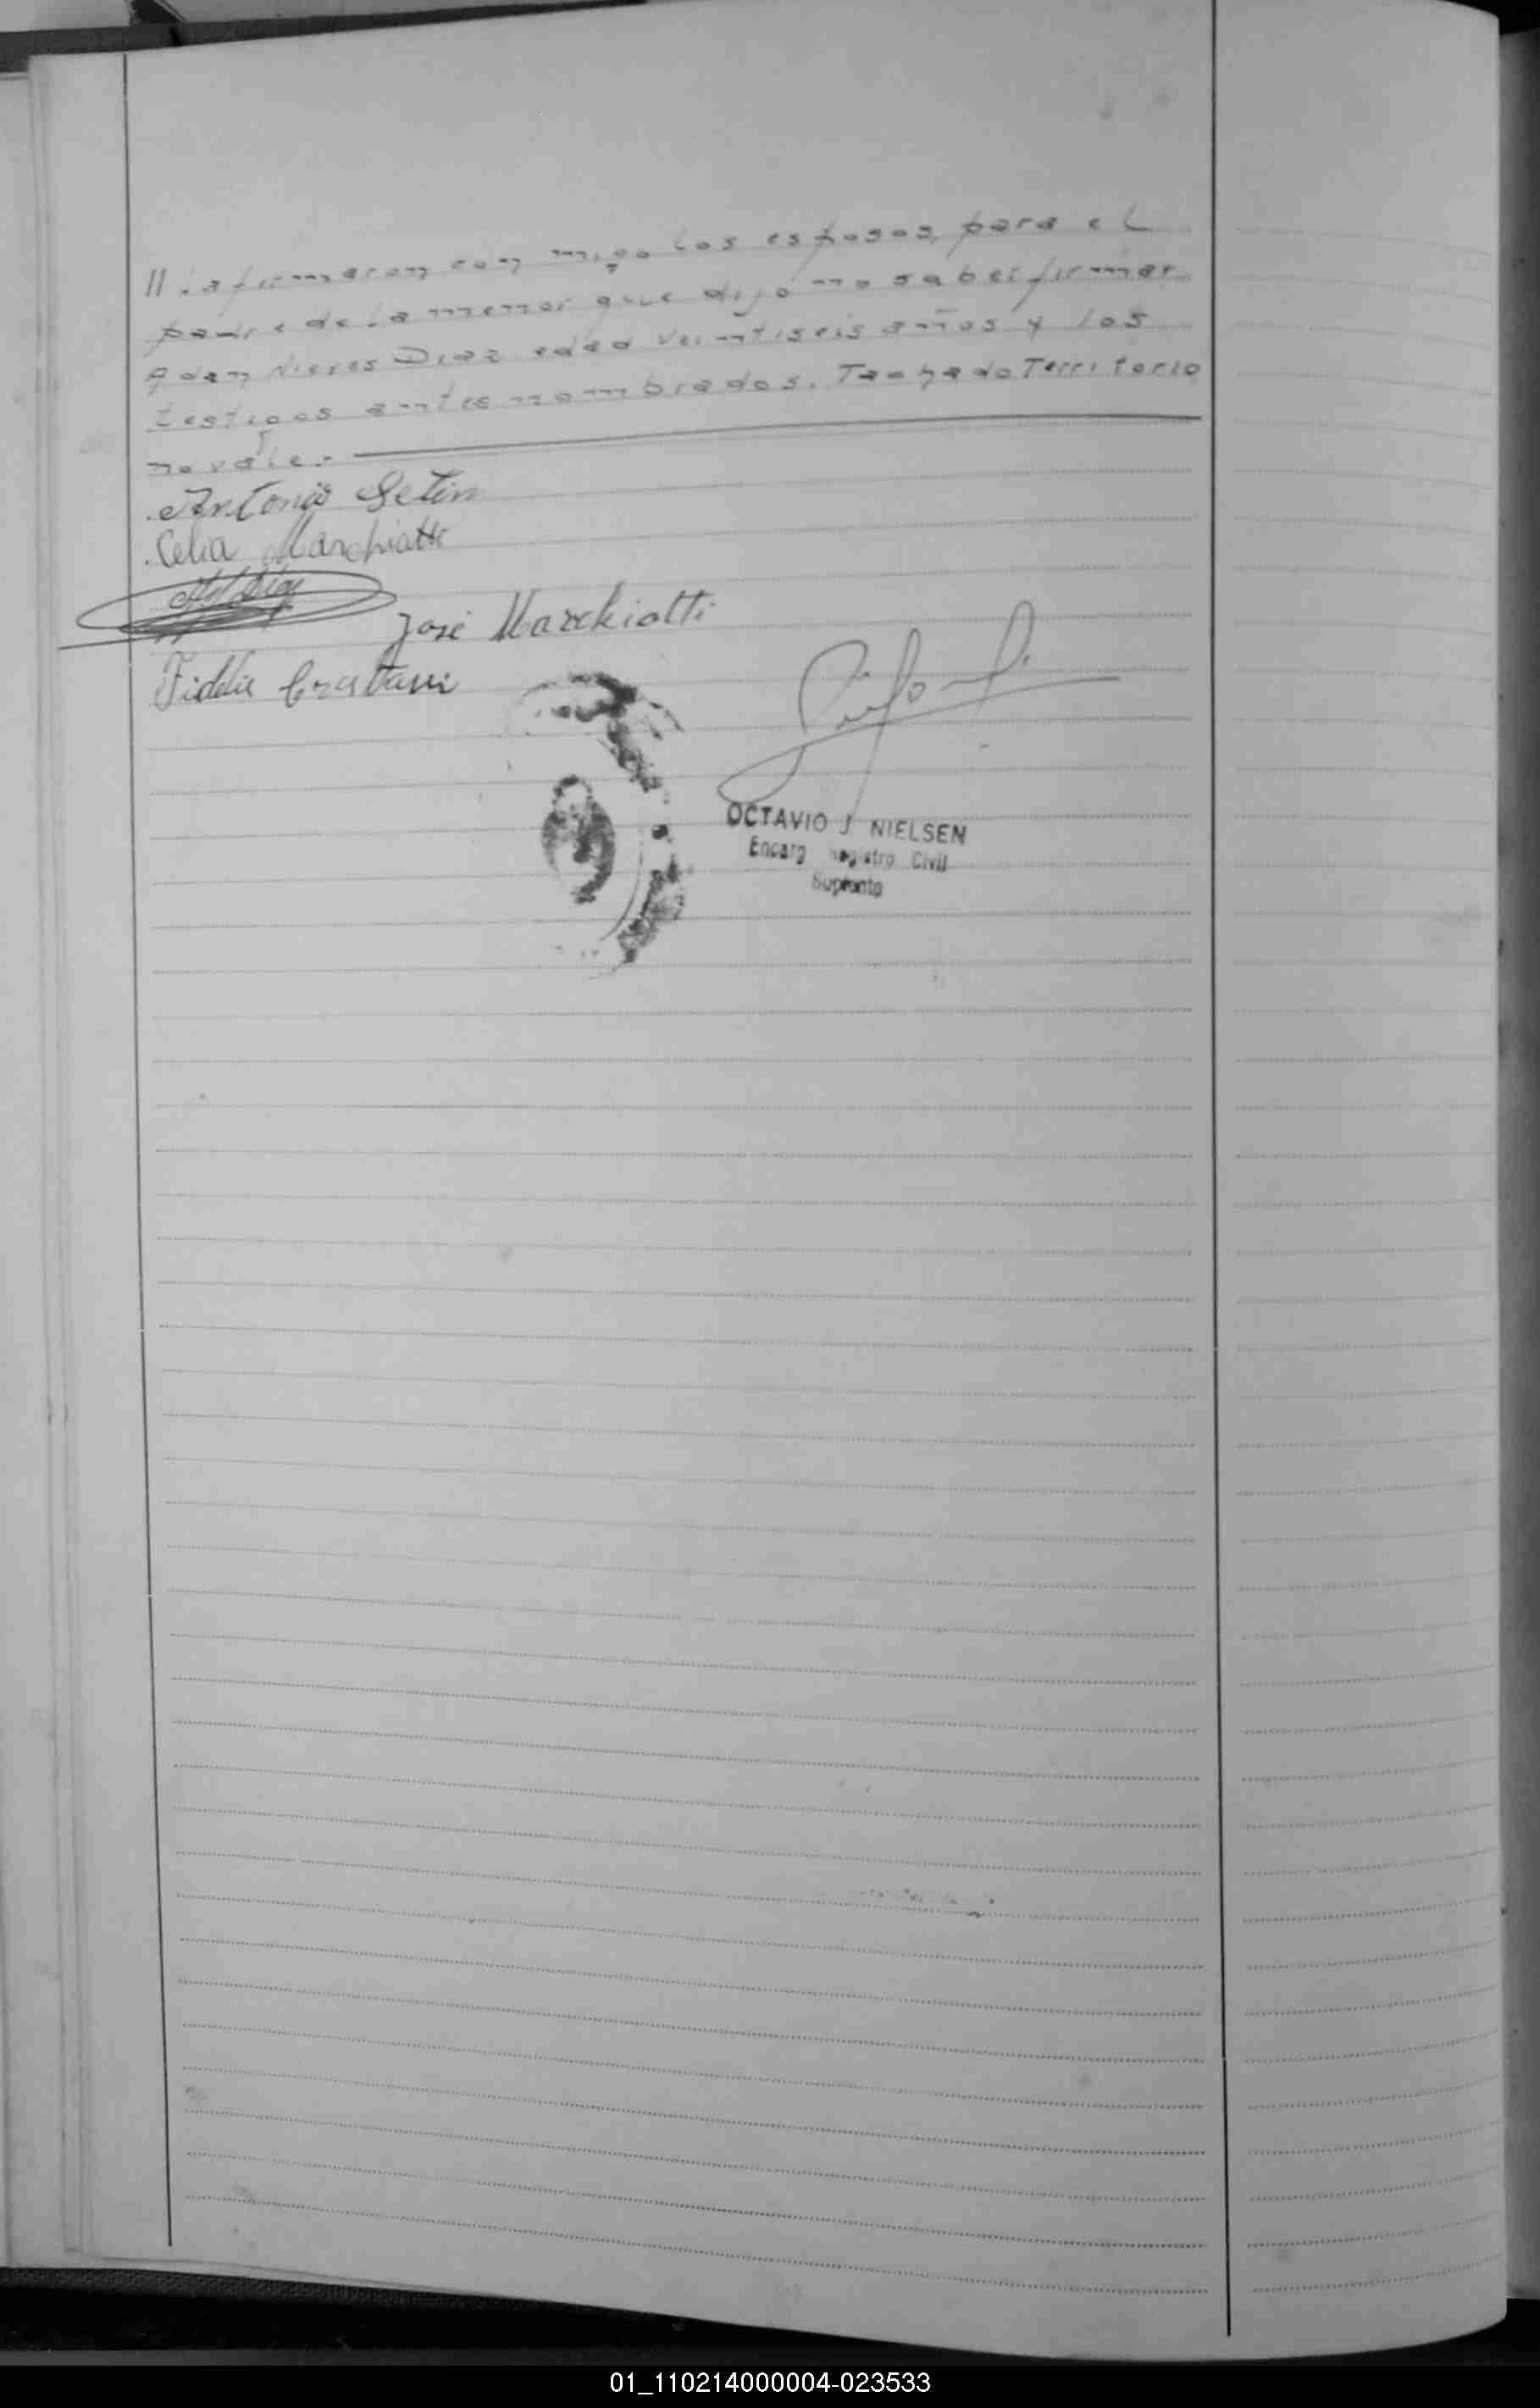 // la firmaron con migo los esposos, para el
padre de la menor que dijo no saber firmar
Adan Nieves Diaz edad veintiseis años y los
testigos antes nombrados. Tachado Territorio
no vale.-
Antonio Setin
Celia Marchiatti
José Marchiatti
Fidelis
OCTAVIO J. NIELSEN
Encarg Registro Civil
Suplente
01_110214000004-023533